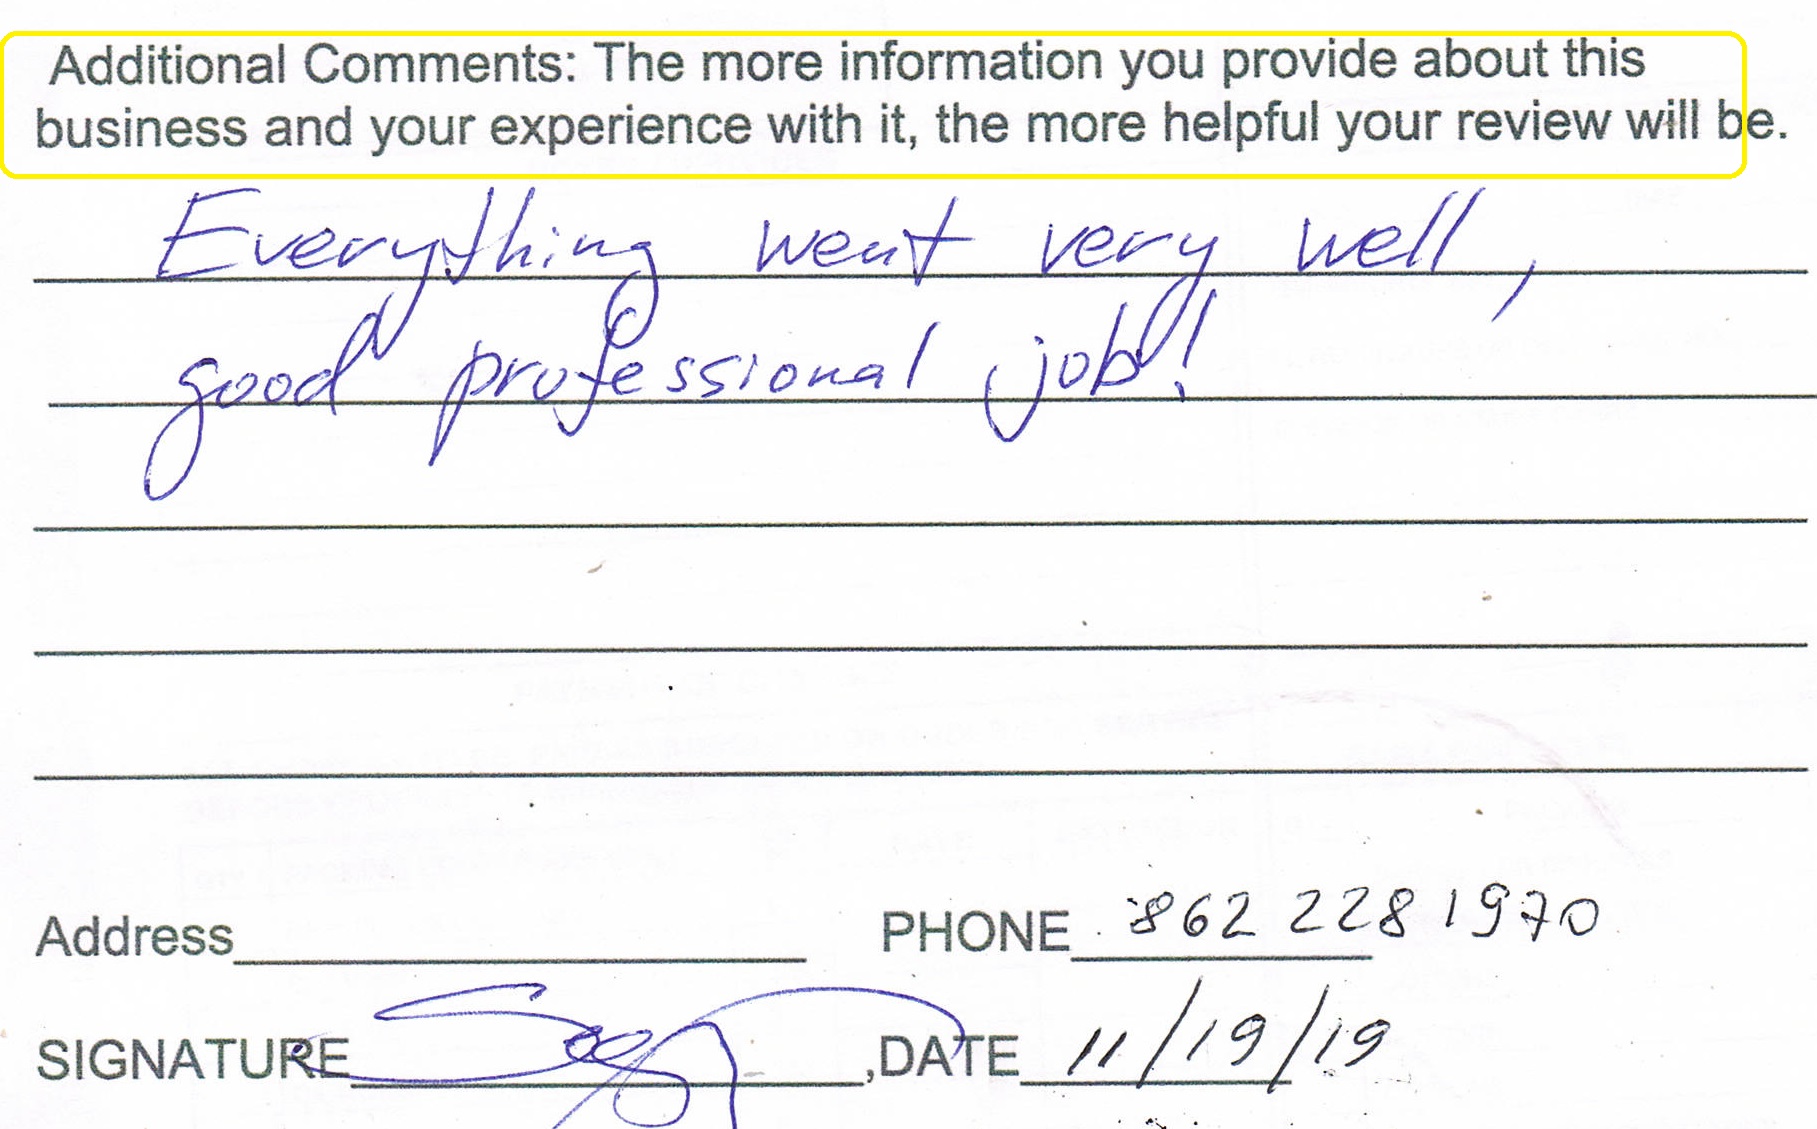 Additional Comments: The more information you provide about this
business and your experience with it, the more helpful your review will be.
Everything went very well,
good professional job!
Address PHONE 862 228 1970
SIGNATURE ,DATE 11/19/19